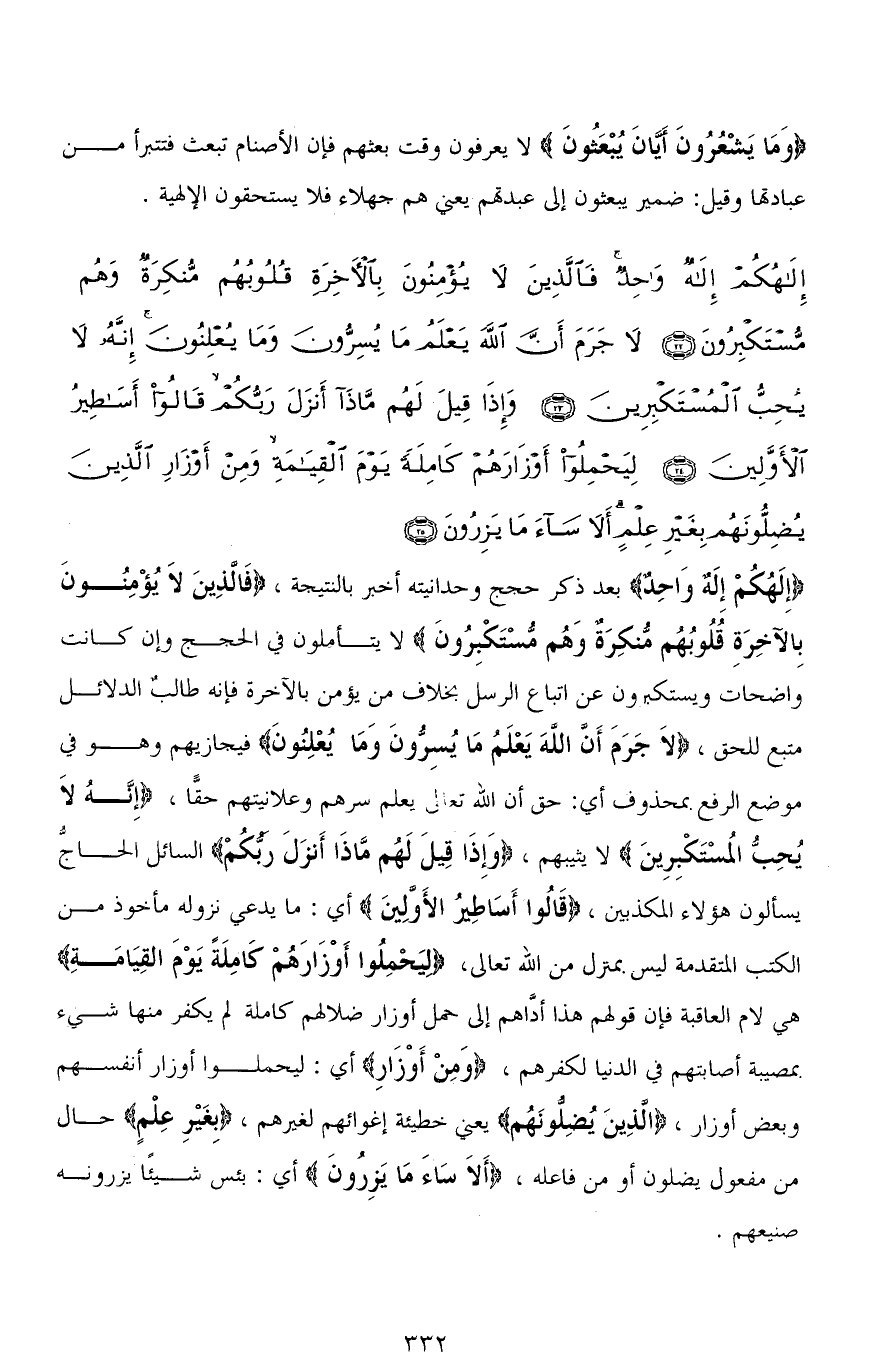 ﴿وَمَا يَشْعُرُونَ أَيَّانَ يُبْعَثُونَ ﴾ لا يعرفون وقت بعثهم فإن الأصنام تبعث فتتبرأ مــــن
عبادتها وقيل: ضمير يبعثون إلى عبدتهم يعني هم جهلاء فلا يستحقون الإلهية .
إِلَٰهُكُمْ إِلَٰهٌ وَٰحِدٌ ۚ فَٱلَّذِينَ لَا يُؤْمِنُونَ بِٱلْأَخِرَةِ قُلُوبُهُم مُّنكِرَةٌ وَهُم
مُّسْتَكْبِرُونَ ٢٢ لَا جَرَمَ أَنَّ ٱللَّهَ يَعْلَمُ مَا يُسِرُّونَ وَمَا يُعْلِنُونَ ۚ إِنَّهُۥ لَا
يُحِبُّ ٱلْمُسْتَكْبِرِينَ ٢٣ وَإِذَا قِيلَ لَهُم مَّاذَآ أَنزَلَ رَبُّكُمْ ۙ قَالُوٓا۟ أَسَٰطِيرُ
ٱلْأَوَّلِينَ ٢٤ لِيَحْمِلُوٓا۟ أَوْزَارَهُمْ كَامِلَةً يَوْمَ ٱلْقِيَٰمَةِ ۙ وَمِنْ أَوْزَارِ ٱلَّذِينَ
يُضِلُّونَهُم بِغَيْرِ عِلْمٍ ۗ أَلَا سَآءَ مَا يَزِرُونَ ٢٥
﴿إِلَهُكُمْ إِلَهٌ وَاحِدٌ﴾ بعد ذكر حجج وحدانيته أخبر بالنتيجة ، ﴿فَالَّذِينَ لاَ يُؤْمِنُــــونَ
بِالآخِرَةِ قُلُوبُهُم مُّنكِرَةٌ وَهُم مُّسْتَكْبِرُونَ ﴾ لا يتــأملون في الحجــج وإن كــانت
واضحات ويستكبرون عن اتباع الرسل بخلاف من يؤمن بالآخرة فإنه طالبٌ الدلائــل
متبع للحق ، ﴿لاَ جَرَمَ أَنَّ اللَّهَ يَعْلَمُ مَا يُسِرُّونَ وَمَا يُعْلِنُونَ﴾ فيجازيهم وهــــو في
موضع الرفع بمحذوف أي: حق أن الله تعالى يعلم سرهم وعلانيتهم حقًّا ، ﴿إِنَّــــهُ لاَ
يُحِبُّ الْمُسْتَكْبِرِينَ ﴾ لا يثيبهم ، ﴿وَإِذَا قِيلَ لَهُم مَّاذَا أَنزَلَ رَبُّكُمْ﴾ السائل الحــــاجُّ
يسألون هؤلاء المكذبين ، ﴿قَالُوا أَسَاطِيرُ الأَوَّلِينَ ﴾ أي : ما يدعي نزوله مأخوذ مـــن
الكتب المتقدمة ليس بمنزل من الله تعالى، ﴿لِيَحْمِلُوا أَوْزَارَهُمْ كَامِلَةً يَوْمَ القِيَامَــــةِ﴾
هي لام العاقبة فإن قولهم هذا أدَّاهم إلى حمل أوزار ضلالهم كاملة لم يكفر منها شــيء
بمصيبة أصابتهم في الدنيا لكفرهم ، ﴿وَمِنْ أَوْزَارِ﴾ أي : ليحملــــوا أوزار أنفســـهم
وبعض أوزار ، ﴿الَّذِينَ يُضِلُّونَهُم﴾ يعني خطيئة إغوائهم لغيرهم ، ﴿بِغَيْرِ عِلْمٍ﴾ حــال
من مفعول يضلون أو من فاعله ، ﴿أَلاَ سَاءَ مَا يَزِرُونَ ﴾ أي : بئس شــيئًا يزرونــه
صنيعهم .
٣٣٢